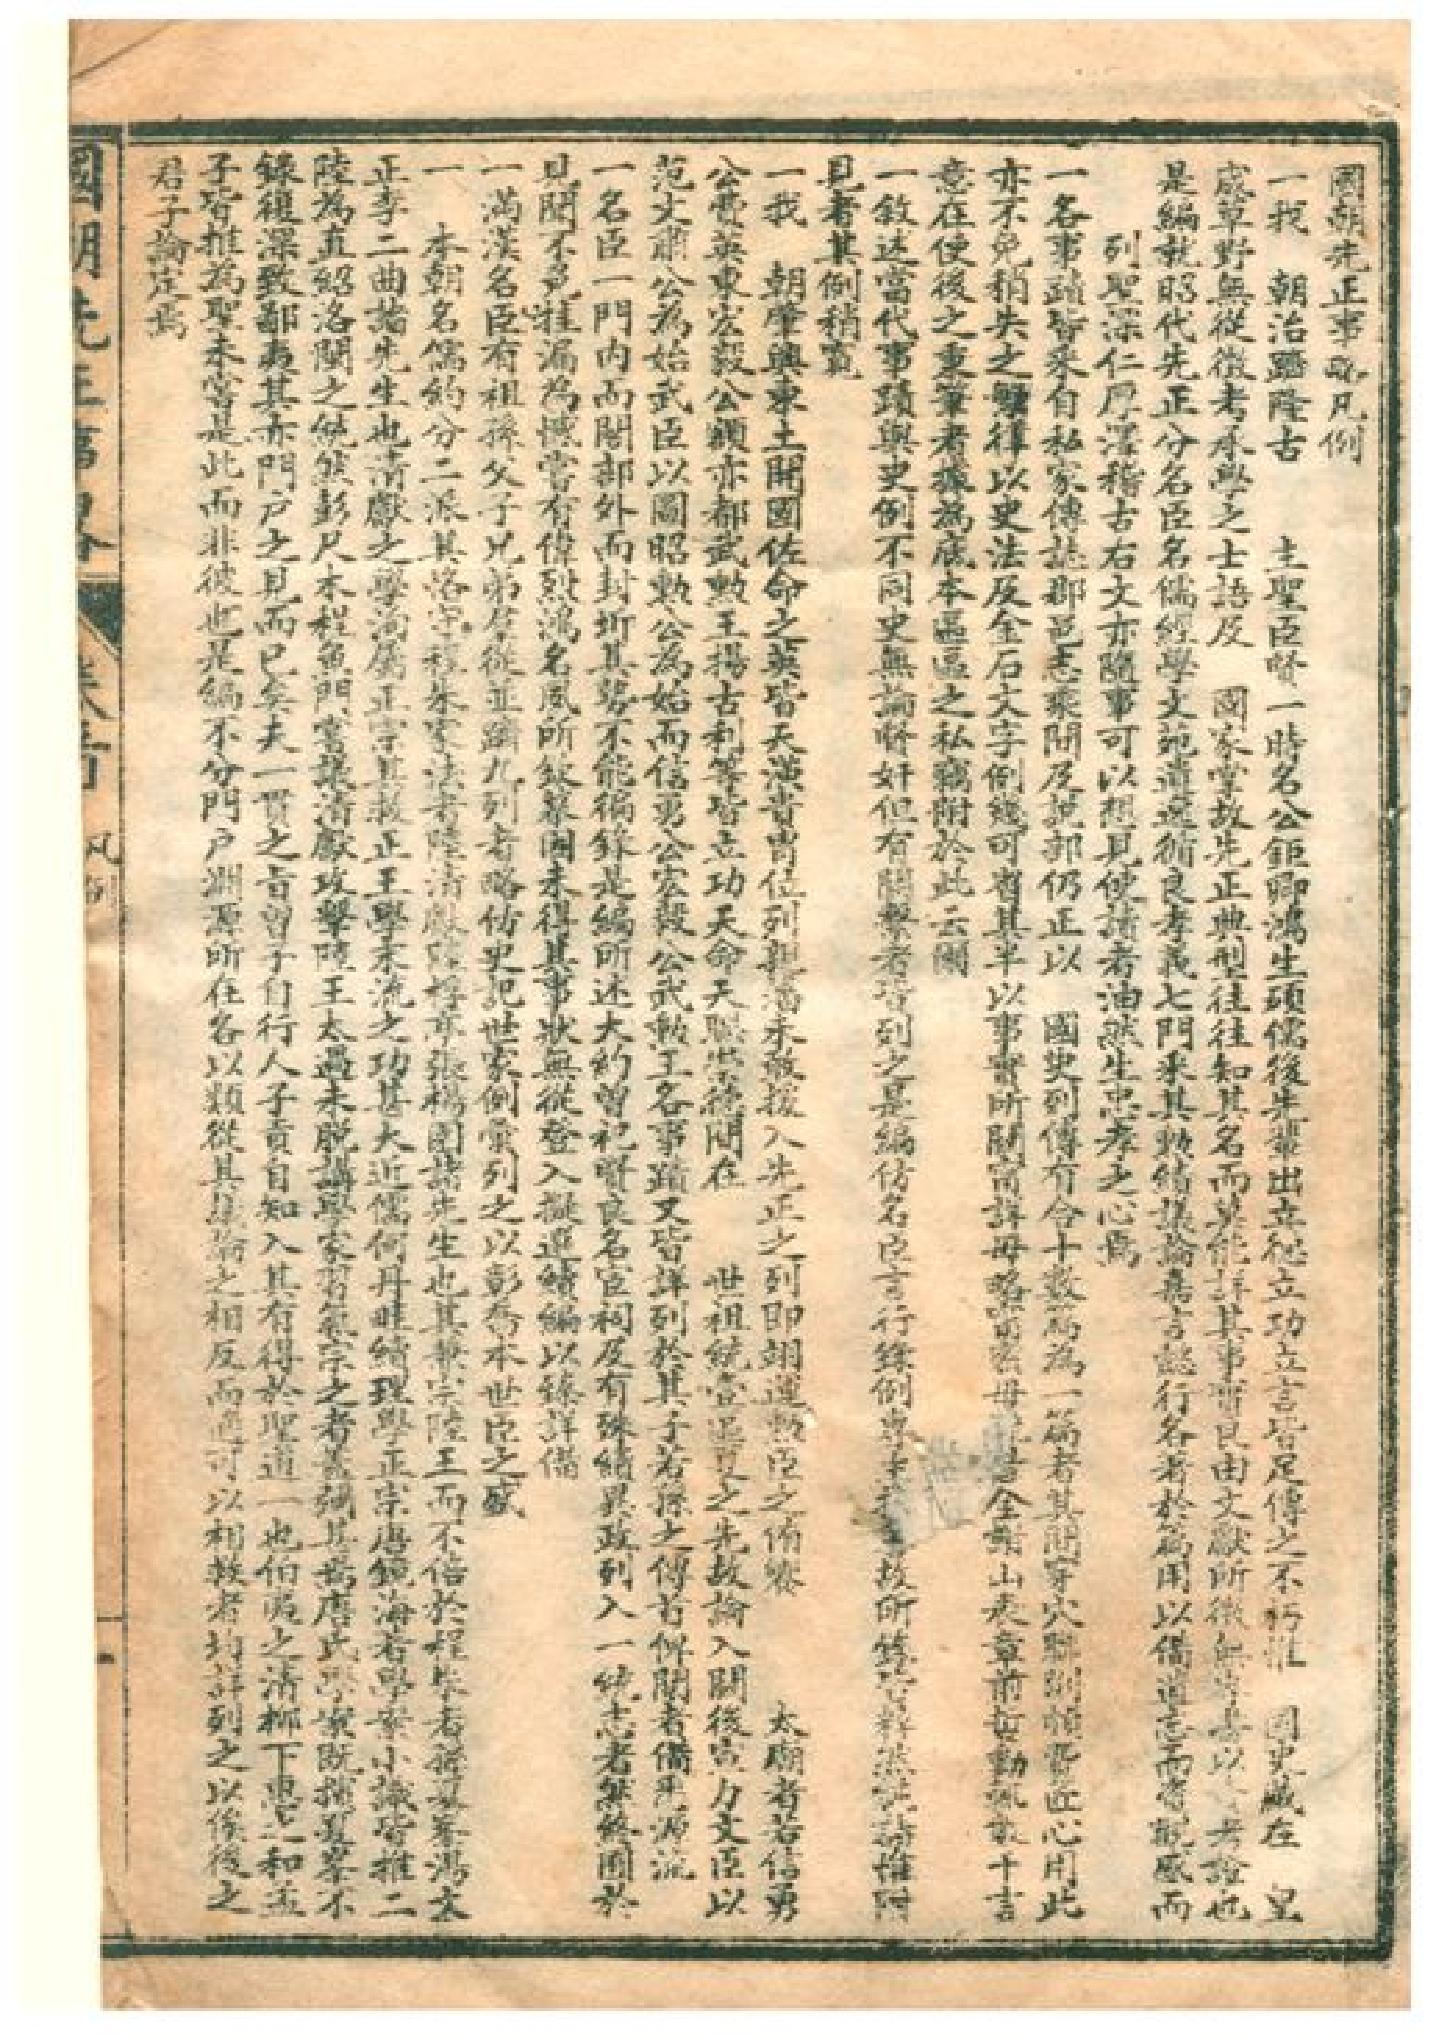 國朝先正事略凡例
一我　朝治躋隆古　　主聖臣賢一時名公鉅卿鴻生碩儒後先輩出立德立功立言皆足傳之不朽惟　國史藏在　皇
宬草野無從徵考承學之士語及　國家掌故先正典型往往知其名而莫能詳其事實良由文獻所徵無專書以考證也
是編就昭代先正分名臣名儒經學文苑遺逸循良孝義七門采其勳績議論嘉言懿行名著於篇用以備遺忘而資觀感而
列聖深仁厚澤稽古右文亦隨事可以想見使讀者油然生忠孝之心焉
一各事蹟皆采自私家傳誌郡邑志乘間及說部仍正以　國史列傳有合十數篇為一篇者其間穿穴聯綴頗費匠心用此
亦不免稍失之繁律以史法及金石文字例幾可省其半以事實所關甯詳毋略甯密毋 全謝山表章前哲動輒數千言
意在使後之秉筆者據為底本區區之私竊附於此云爾
一敘述當代事蹟與史例不同史無論賢奸但有關繫者皆列之是編仿名臣言行錄例專主 故所錄 惟附
見者其例稍寬
一我　朝肇興東土開國佐命之英皆天潢貴胄位列親藩未敢援入先正之列即翊運勲臣之侑饗　　太廟者若信勇
公費英東宏毅公額亦都武勲王揚古利等皆立功天命天聰崇德間在　　世祖統壹區夏之先故論入關後宣力文臣以
范文肅公為始武臣以圖昭勲公為始而信勇公宏毅公武勲王各事蹟又皆詳列於其子若孫之傳首俾閱者備悉源流
一名臣一門內而閣部外而封圻其勢不能徧錄是編所述大約曾祀賢良名宦祠及有殊績異政列入一統志者然敘囿於
見聞不免挂漏為憾當有偉烈鴻名夙所欽慕囿未得其事狀無從登入擬選續編以臻詳備
一滿漢名臣有祖孫父子兄弟羣從並躋九列者略仿史記世家例彙列之以彰喬木世臣之盛
一　本朝名儒約分二派其恪守程朱家法者陸清獻陸桴亭張楊園諸先生也其兼宗陸王而不倍於程朱者孫夏峯湯文
正李二曲諸先生也清獻之學洵屬正宗其救正王學末流之功甚大近儒何丹畦續理學正宗唐鏡海著學案小識皆推二
陸為直紹洛閩之統然彭尺木程魚門嘗議清獻攻擊陸王太過未脫講學家習氣宗之者甚弱其焉唐氏學案既擯夏峯不
錄復深致鄙夷其亦門戶之見而已矣夫一貫之旨曾子自行人子貢自知入其有得於聖道一也伯夷之清柳下惠之和孟
子皆推為聖未嘗是此而非彼也是編不分門戶淵源所在各以類從其議論之相反而適可以相救者均詳列之以俟後之
君子論定焉
國朝先正事略
卷首　凡例
一